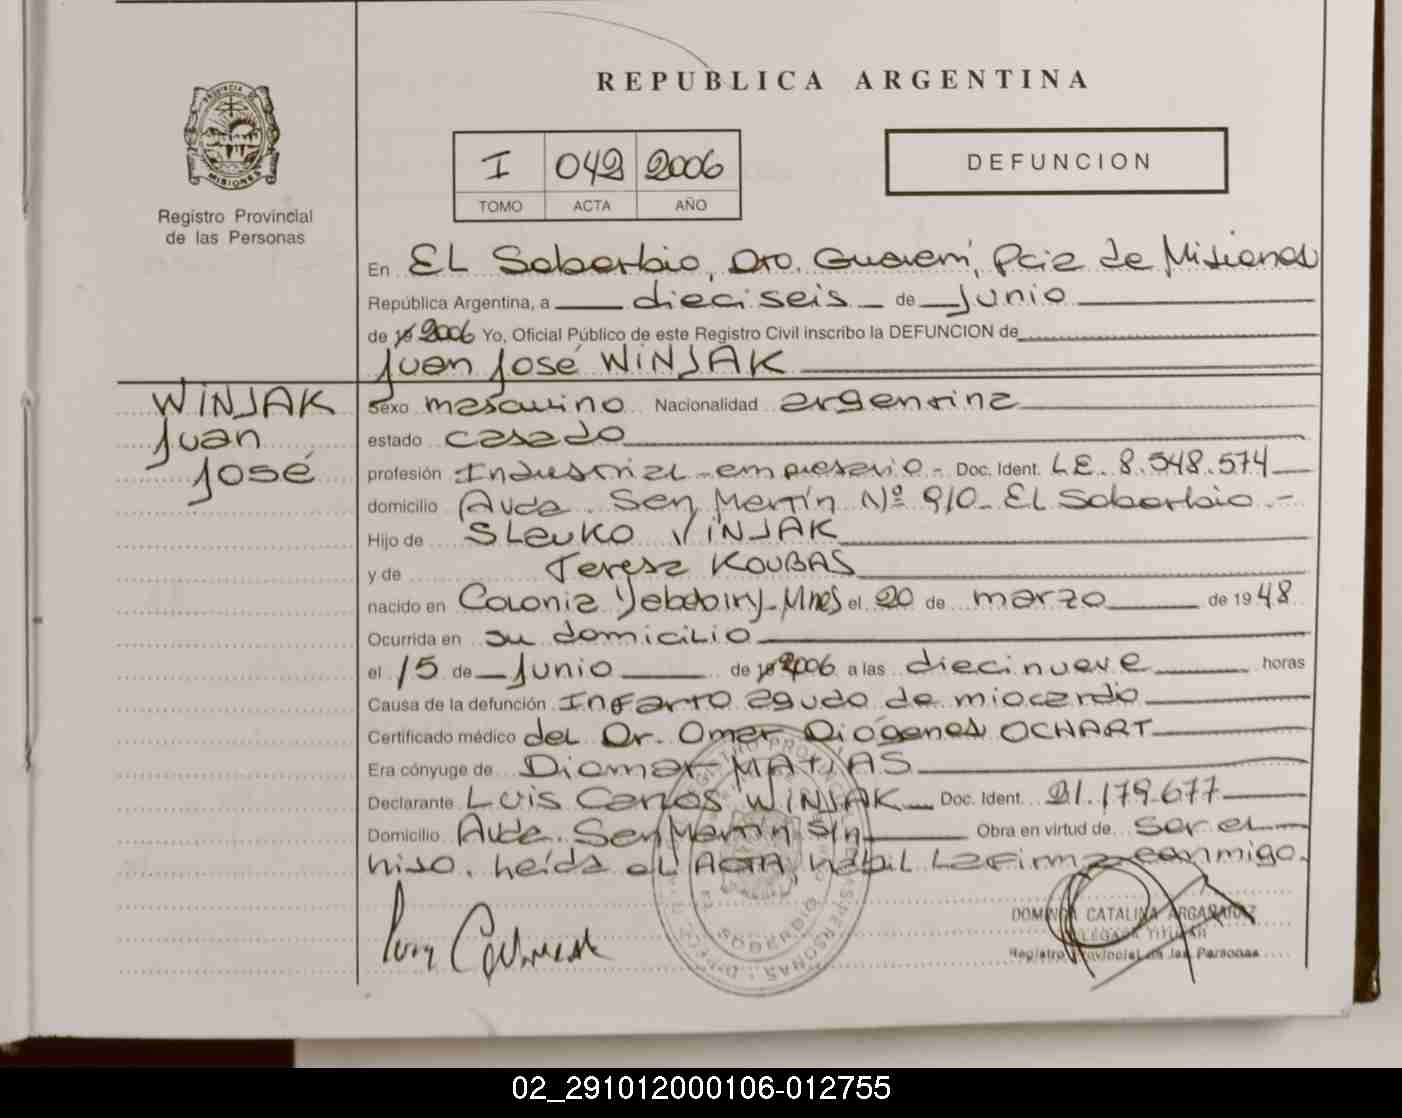 REPUBLICA ARGENTINA
PROVINCIA DE
MISIONES
Registro Provincial
de las Personas
I 042 2006
TOMO ACTA AÑO
DEFUNCION
En EL Soberbio, Dto. Guaraní, Pcia de Misiones
República Argentina, a dieciseis de Junio
de 2006 Yo, Oficial Público de este Registro Civil inscribo la DEFUNCION de
Juan José WiNJAK
WiNJAK
Juan
José
Sexo masculino Nacionalidad argentina
estado casado
profesión Industrial-empresario- Doc. Ident. L.E. 8.548.574
domicilio Avda. San Martín Nº 910- EL Soberbio -
Hijo de SLavko ViNJAK
y de Teresa KOUBAS
nacido en Colonia Yabebiry-Mnes el 20 de marzo de 1948
Ocurrida en su domicilio
el 15 de Junio de 2006 a las diecinueve horas
Causa de la defunción Infarto agudo de miocardio
Certificado médico del Dr. Omar Diógenes OCHART
Era cónyuge de Diomar MATIAS
Declarante Luis Carlos WiNJAK Doc. Ident. 21.179.677
Domicilio Avda. San Martín S/n Obra en virtud de ser el
hijo. heída el ACTA, hábil La firma conmigo.
DOMINGA CATALINA ARGAÑARAZ
DELEGADA TITULAR
Registro Provincial de las Personas
02_291012000106-012755